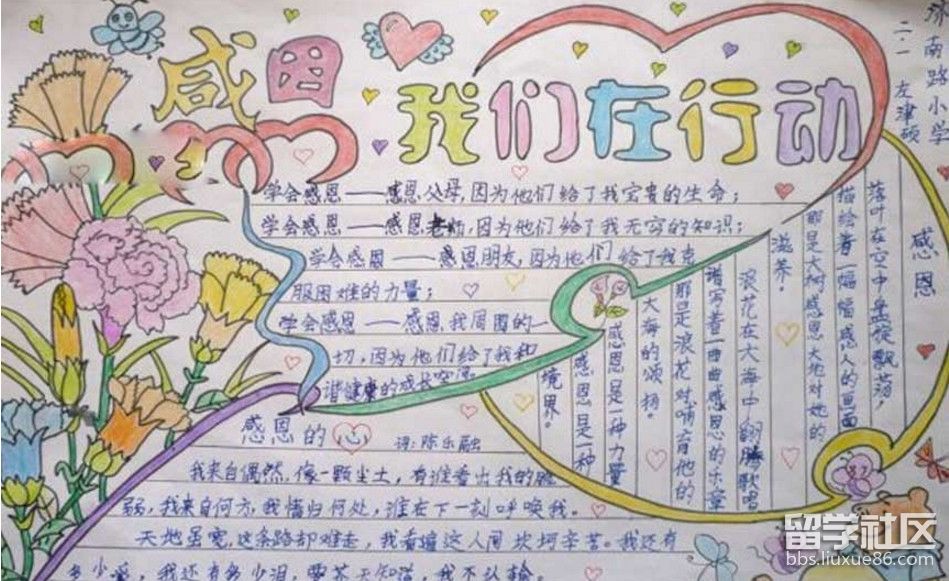 感恩
我们在行动
南路小学
二.一 左津硕
学会感恩——感恩父母,因为他们给了我宝贵的生命;
学会感恩——感恩老师,因为他们给了我无穷的知识;
学会感恩——感恩朋友,因为他们给了我克
服困难的力量;
学会感恩——感恩我周围的一
切,因为他们给了我和
谐健康的成长空间
感恩
落叶在空中盘旋飘荡,
描绘着一幅幅感人的画面
那是大树感恩大地对她的
滋养。
浪花在大海中翻腾歌唱
谱写着一曲曲感恩的乐章
那是浪花对哺育他的
大海的颂扬。
感恩是一种力量
感恩是一种
境界。
感恩的心 词:陈乐融
我来自偶然,像一颗尘土,有谁看出我的脆
弱,我来自何方,我情归何处,谁在下一刻呼唤我。
天地虽宽,这条路却难走,我看遍这人间坎坷辛苦。我还有
多少爱,我还有多少泪,要苍天知道,我不认输
留学社区
bbs.liuxue86.com